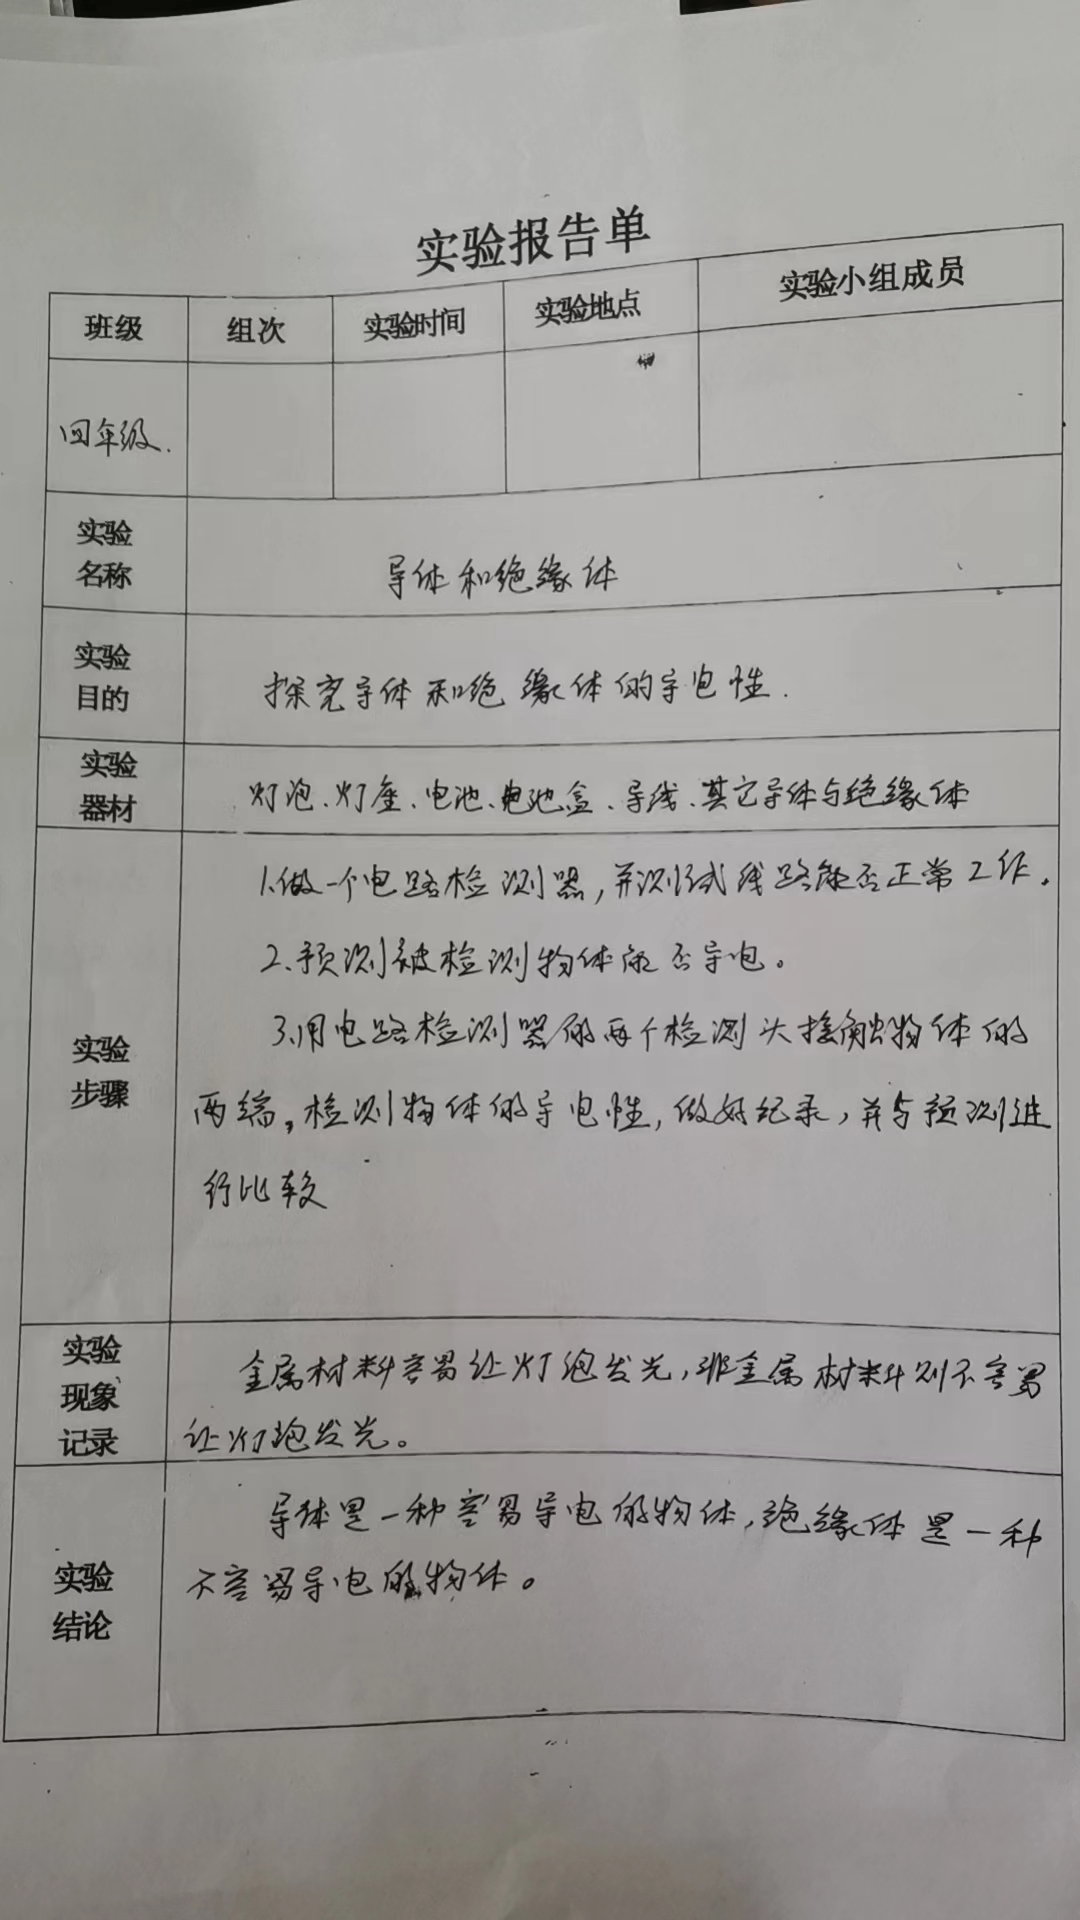 实验报告单
班级 组次 实验时间 实验地点 实验小组成员
四年级.
实验
名称
导体和绝缘体
实验
目的
探究导体和绝缘体的导电性.
实验
器材
灯泡、灯座、电池、电池盒、导线、其它导体与绝缘体
实验
步骤
1.做一个电路检测器,并测试线路能否正常工作。
2.预测被检测物体能否导电。
3.用电路检测器的两个检测头接触物体的
两端,检测物体的导电性,做好纪录,并与预测进
行比较
实验
现象
记录
金属材料容易让灯泡发光,非金属材料则不容易
让灯泡发光。
实验
结论
导体是一种容易导电的物体,绝缘体是一种
不容易导电的物体。